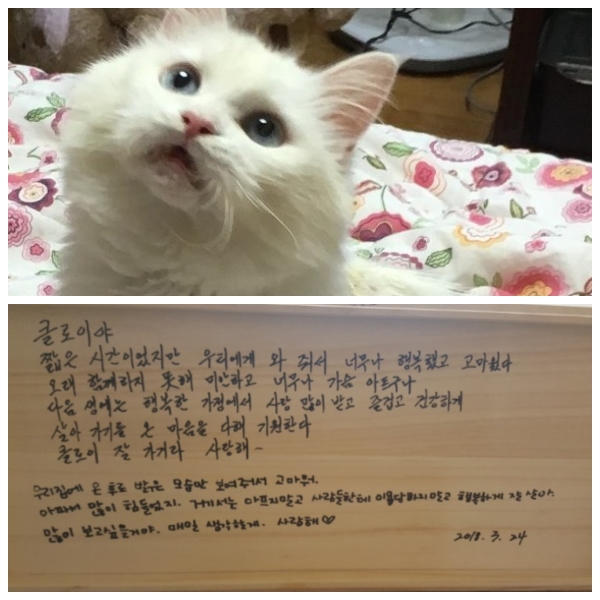 클로이야
짧은 시간이었지만 우리에게 와 줘서 너무나 행복했고 고마웠다
오래 함께하지 못해 미안하고 너무나 가슴 아프구나
다음 생에는 행복한 가정에서 사랑 많이 받고 즐겁고 건강하게
살아 가기를 온 마음을 다해 기원한다
클로이 잘 가거라 사랑해~
우리집에 온 후로 밝은 모습만 보여줘서 고마워.
아파서 많이 힘들었지. 거기서는 아프지말고 사람들한테 이용당하지말고 행복하게 잘 살아.
많이 보고싶을거야. 매일 생각할게. 사랑해♡
2018. 3. 24